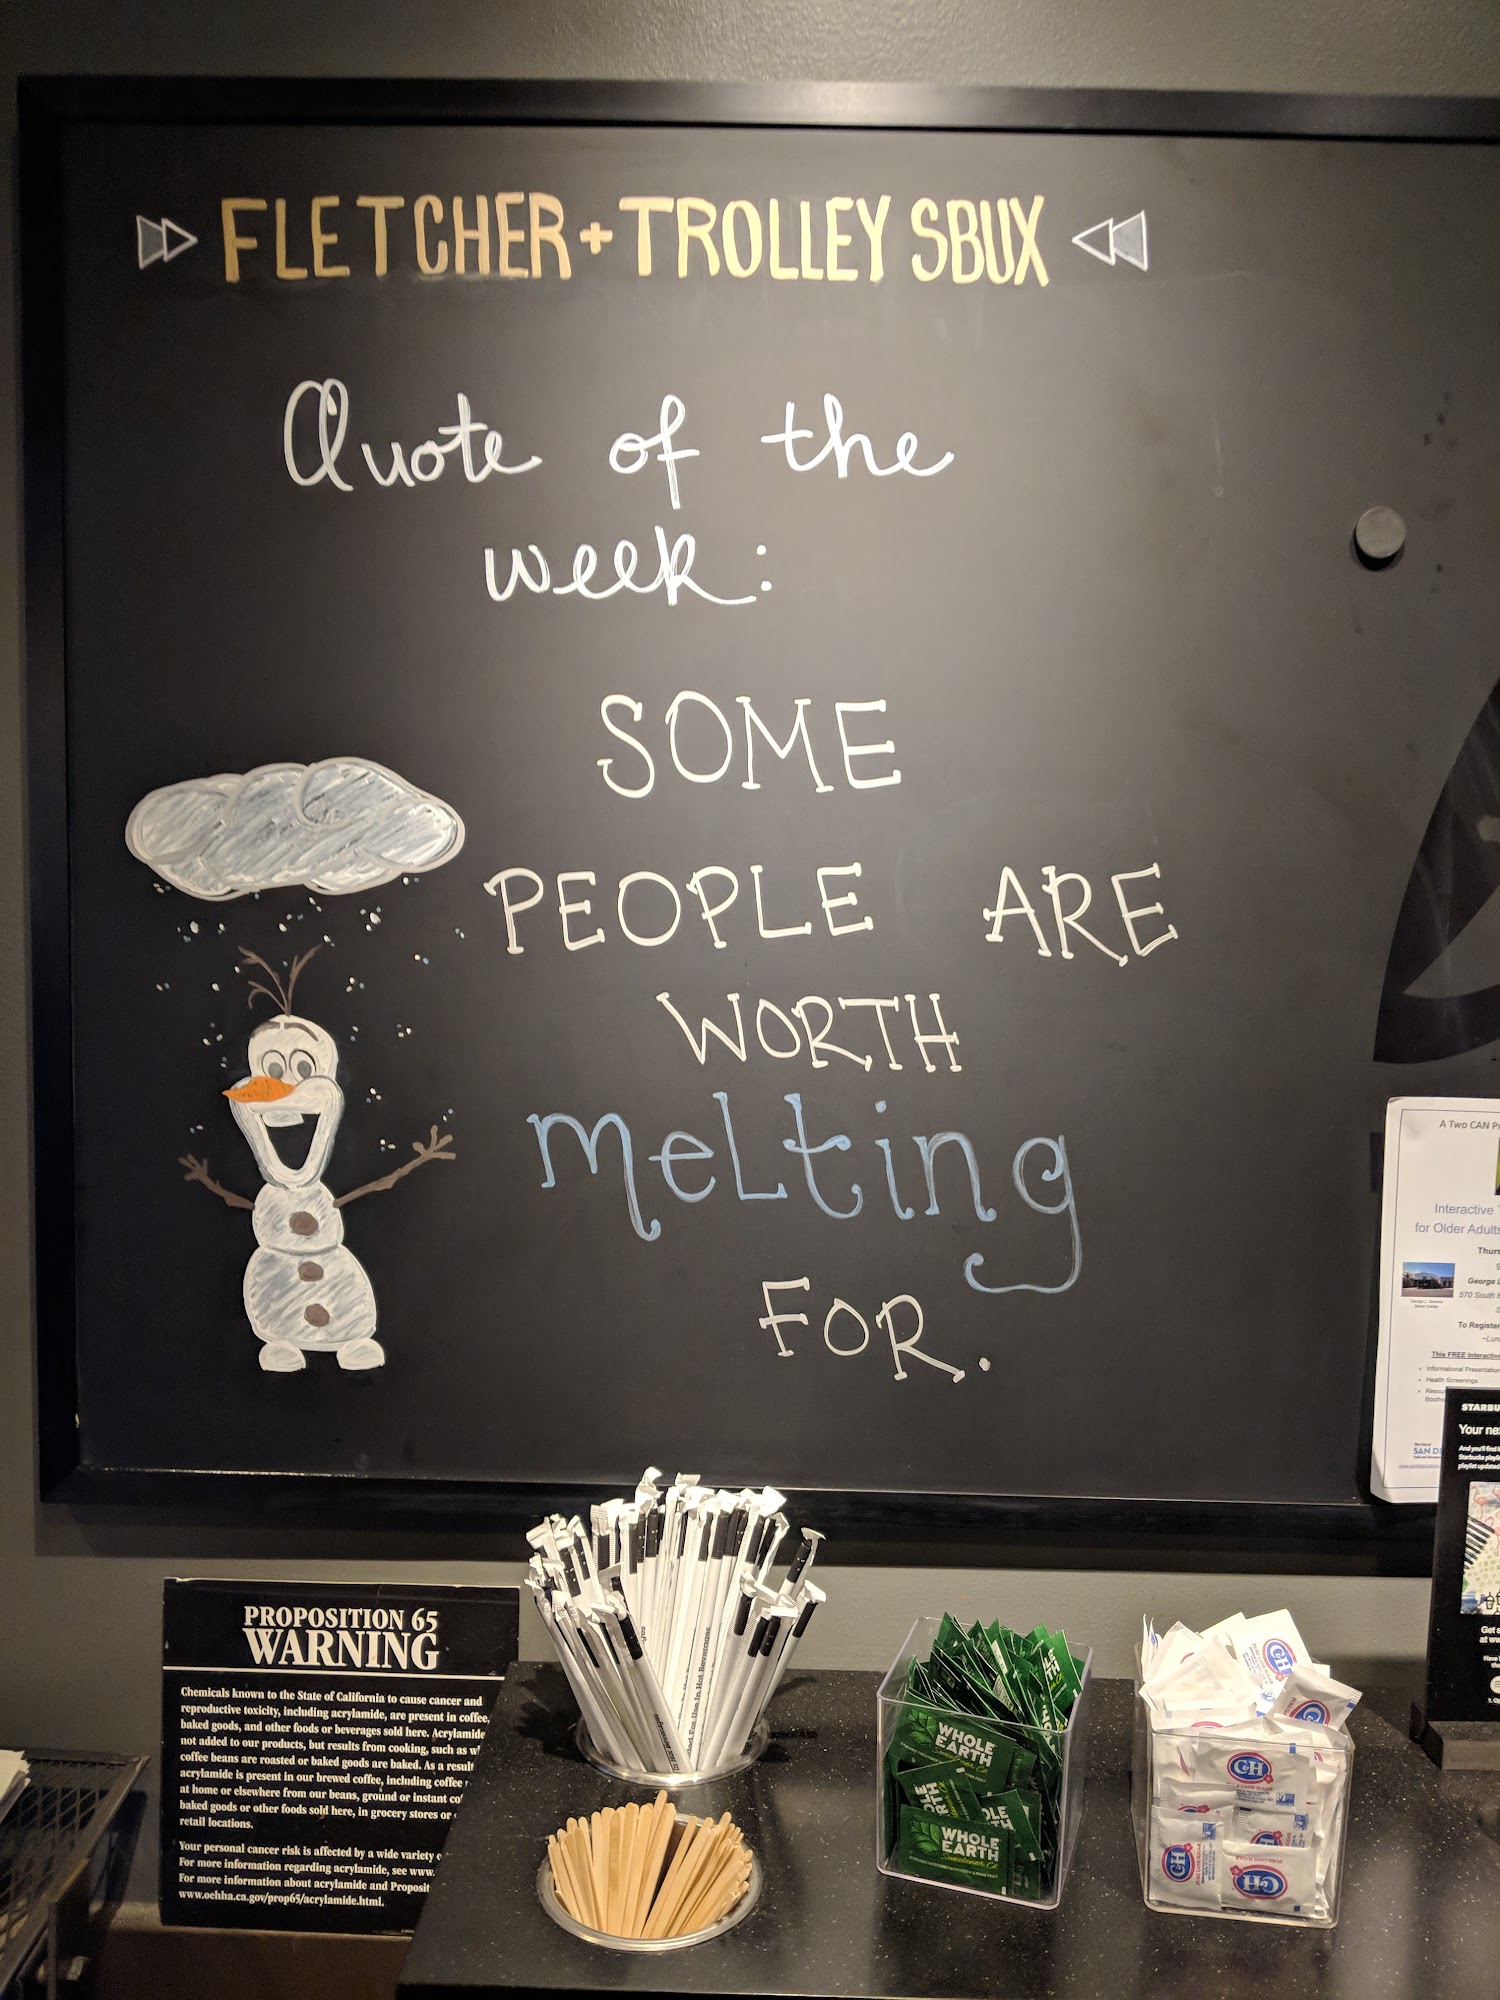 FLETCHER + TROLLEY SBUX
Quote of the
week:
SOME
PEOPLE ARE
WORTH
melting
FOR.
A Two CAN
Interactive
for Older Adults
Thurs
George
570 South
To Register
This FREE Interactive
Informational Presentation
Health Screenings
SAN DI
STARBU
Your ne
And you'll find
Starbucks
playlist updated
Get
at
PROPOSITION 65
WARNING
Chemicals known to the State of California to cause cancer and
reproductive toxicity, including acrylamide, are present in coffee,
baked goods, and other foods or beverages sold here. Acrylamide
not added to our products, but results from cooking, such as
coffee beans are roasted or baked goods are baked. As a result
acrylamide is present in our brewed coffee, including coffee
at home or elsewhere from our beans, ground or instant
baked goods or other foods sold here, in grocery stores or
retail locations.
Your personal cancer risk is affected by a wide variety
For more information regarding acrylamide, see www.
For more information about acrylamide and Proposit
www.oehha.ca.gov/prop65/acrylamide.html.
For Use In Hot Beverages
WHOLE
EARTH
Sweetener Co.
WHOLE
EARTH
Sweetener Co.
C&H
C&H
C&H
C&H
C&H